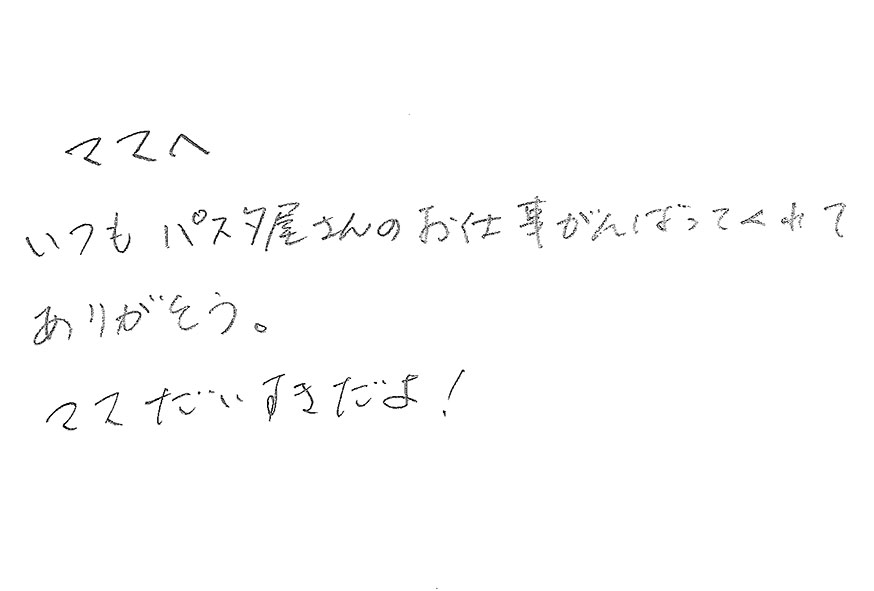 ママへ
いつもパスタ屋さんのお仕事がんばってくれて
ありがとう。
ママだいすきだよ！